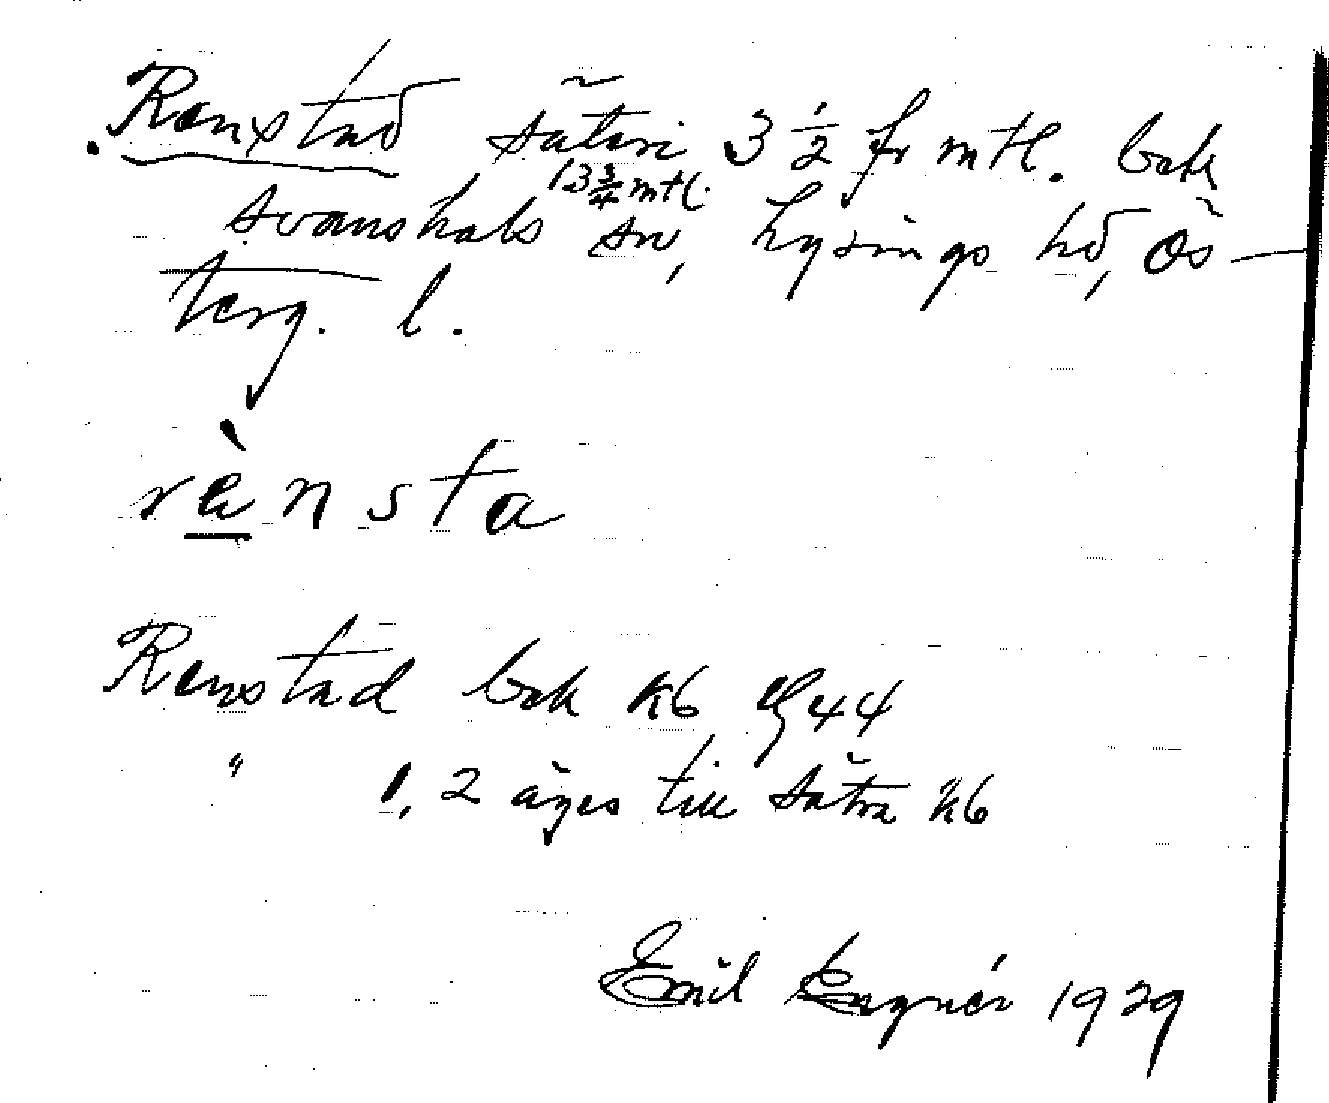 Renstad säteri 3 1/2 fr mtl. bok
13 3/4 mtl.
Svanshals sn, Lysings hd, Ös-
terg. l.
rènsta
Renstad bok K6 44
" 1, 2 äges till Sätra K6
Emil 1929